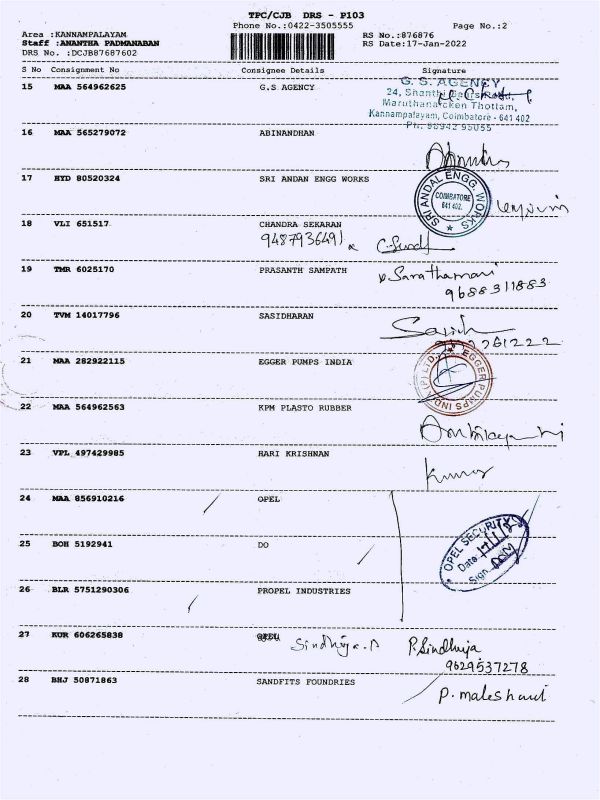 TPC/CJB DRS - P103
Phone No.:0422-3505555
Page No.:2
Area :KANNAMPALAYAM
RS No.:876876
Staff :ANANTHA PADMANABAN
RS Date:17-Jan-2022
DRS No. :DCJB87687602
S No Consignment No Consignee Details Signature
15 MAA 564962625 G.S AGENCY
G. S. AGENCY
24, Shanthi
Maruthanaicken Thottam,
Kannampalayam, Coimbatore - 641 402
Ph: 98942 95055
16 MAA 565279072 ABINANDHAN
17 HYD 80520324 SRI ANDAN ENGG WORKS
SRI ANDAL ENGG. WORKS
COIMBATORE
641 402.
18 VLI 651517 CHANDRA SEKARAN
9487936491
19 TMR 6025170 PRASANTH SAMPATH
9688311883
20 TVM 14017796 SASIDHARAN
21 MAA 282922115 EGGER PUMPS INDIA
EGGER PUMPS INDIA (P) LTD.
22 MAA 564962563 KPM PLASTO RUBBER
23 VPL 497429985 HARI KRISHNAN
Kumar
24 MAA 856910216 OPEL
OPEL SECURITY
Date
Sign
25 BOH 5192941 DO
26 BLR 5751290306 PROPEL INDUSTRIES
27 KUR 606265838 Sindhuja.P P.Sindhuja
9629537278
28 BHJ 50871863 SANDFITS FOUNDRIES